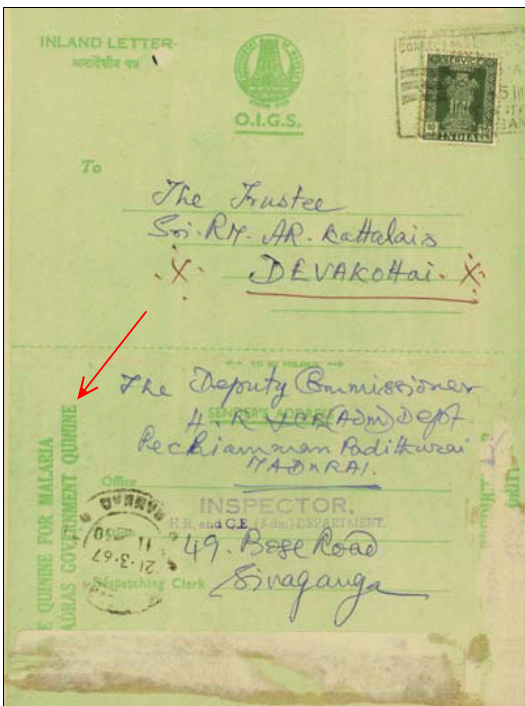 INLAND LETTER-
अन्तर्देशीय पत्र
O.I.G.S.
SERVICE
10
INDIA
To
The Trustee
Sri. RM. AR. Kattalais
.X. DEVAKOttai. X.
TO BE FOLDED
The Deputy Commissioner
SENDER'S ADDRESS
H.R (Adm) Dept
Pechiamman Padithurai
MADURAI.
Office
INSPECTOR.
H.R. and C.E. (Adm:) DEPARTMENT.
49. Bose Road
Despatching Clerk
Sivaganga
21-3-67
QUININE FOR MALARIA
GOVERNMENT QUININE